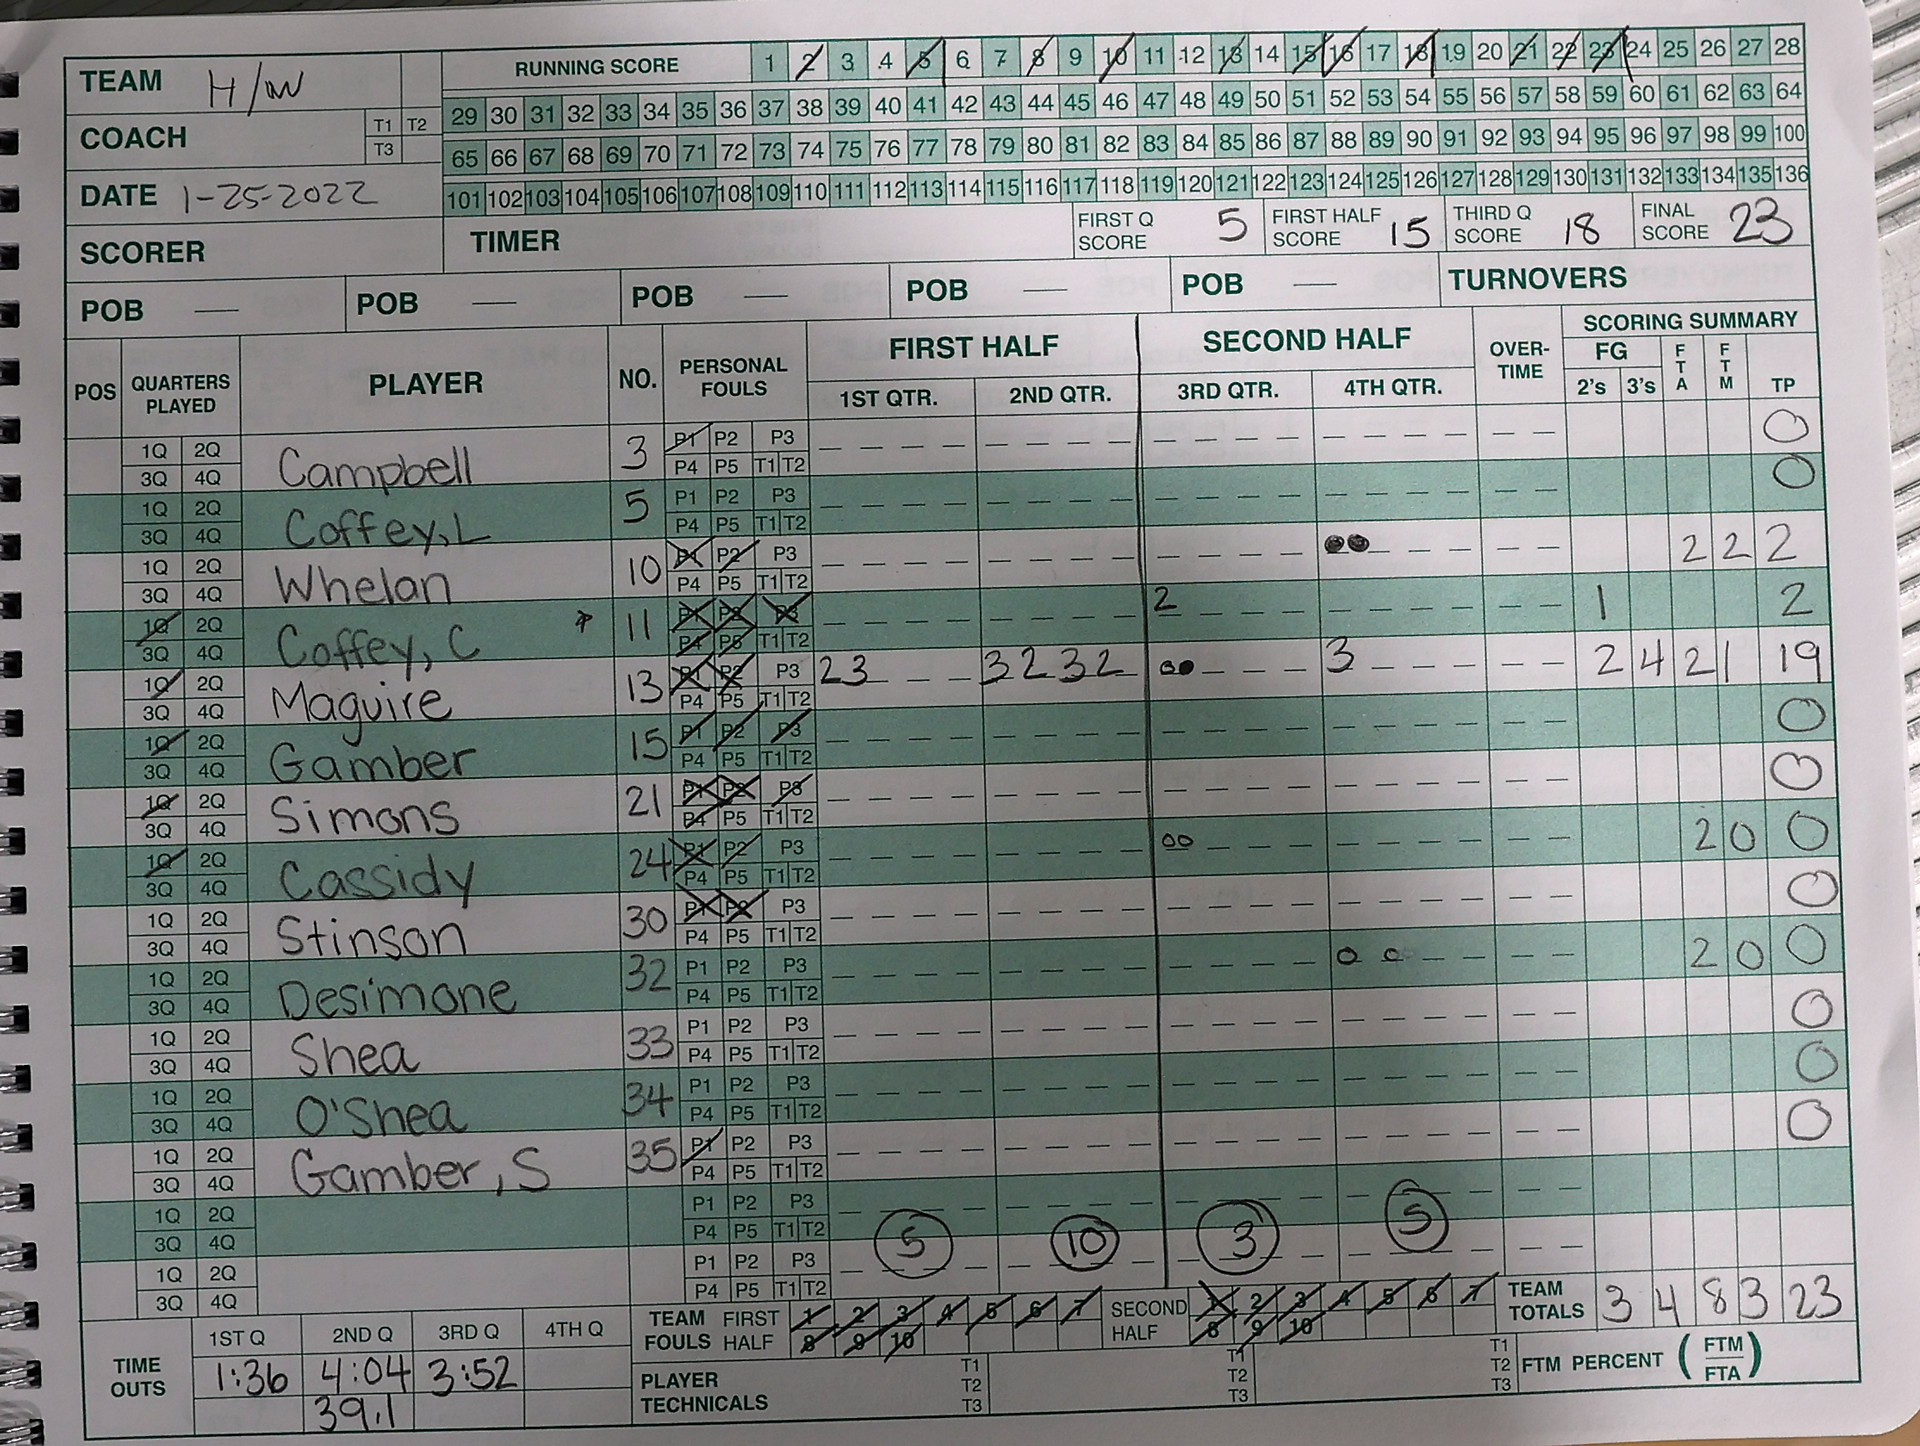 TEAM H/W
RUNNING SCORE 1 2 3 4 5 6 7 8 9 10 11 12 13 14 15 16 17 18 19 20 21 22 23 24 25 26 27 28
29 30 31 32 33 34 35 36 37 38 39 40 41 42 43 44 45 46 47 48 49 50 51 52 53 54 55 56 57 58 59 60 61 62 63 64
COACH T1 T2 T3
65 66 67 68 69 70 71 72 73 74 75 76 77 78 79 80 81 82 83 84 85 86 87 88 89 90 91 92 93 94 95 96 97 98 99 100
DATE 1-25-2022
101 102 103 104 105 106 107 108 109 110 111 112 113 114 115 116 117 118 119 120 121 122 123 124 125 126 127 128 129 130 131 132 133 134 135 136
SCORER TIMER FIRST Q SCORE 5 FIRST HALF SCORE 15 THIRD Q SCORE 18 FINAL SCORE 23
POB — POB — POB — POB — POB — TURNOVERS
POS QUARTERS PLAYED PLAYER NO. PERSONAL FOULS FIRST HALF SECOND HALF OVER-TIME SCORING SUMMARY
1ST QTR. 2ND QTR. 3RD QTR. 4TH QTR. FG 2's 3's FTA FTM TP
1Q 2Q Campbell 3 P1 P2 P3 0
3Q 4Q P4 P5 T1 T2
1Q 2Q Coffey, L 5 P1 P2 P3 0
3Q 4Q P4 P5 T1 T2
1Q 2Q Whelan 10 P1 P2 P3 2 2 2
3Q 4Q P4 P5 T1 T2
1Q 2Q Coffey, C * 11 P1 P2 P3 2 1 2
3Q 4Q P4 P5 T1 T2
1Q 2Q Maguire 13 P1 P2 P3 2 3 3 2 3 2 3 2 4 2 1 19
3Q 4Q P4 P5 T1 T2
1Q 2Q Gamber 15 P1 P2 P3 0
3Q 4Q P4 P5 T1 T2
1Q 2Q Simons 21 P1 P2 P3 0
3Q 4Q P4 P5 T1 T2
1Q 2Q Cassidy 24 P1 P2 P3 00 2 0 0
3Q 4Q P4 P5 T1 T2
1Q 2Q Stinson 30 P1 P2 P3 0
3Q 4Q P4 P5 T1 T2
1Q 2Q Desimone 32 P1 P2 P3 0 0 2 0 0
3Q 4Q P4 P5 T1 T2
1Q 2Q Shea 33 P1 P2 P3 0
3Q 4Q P4 P5 T1 T2
1Q 2Q O'Shea 34 P1 P2 P3 0
3Q 4Q P4 P5 T1 T2
1Q 2Q Gamber, S 35 P1 P2 P3 0
3Q 4Q P4 P5 T1 T2
1Q 2Q P1 P2 P3
3Q 4Q P4 P5 T1 T2 5 10 3 5
1Q 2Q P1 P2 P3
3Q 4Q P4 P5 T1 T2
TEAM FOULS FIRST HALF 1 2 3 4 5 6 7 8 9 10 SECOND HALF 1 2 3 4 5 6 7 8 9 10 TEAM TOTALS 3 4 8 3 23
TIME OUTS 1ST Q 2ND Q 3RD Q 4TH Q
1:36 4:04 3:52
39.1
PLAYER TECHNICALS T1 T2 T3 T1 T2 T3 T1 T2 T3 FTM PERCENT (FTM FTA)